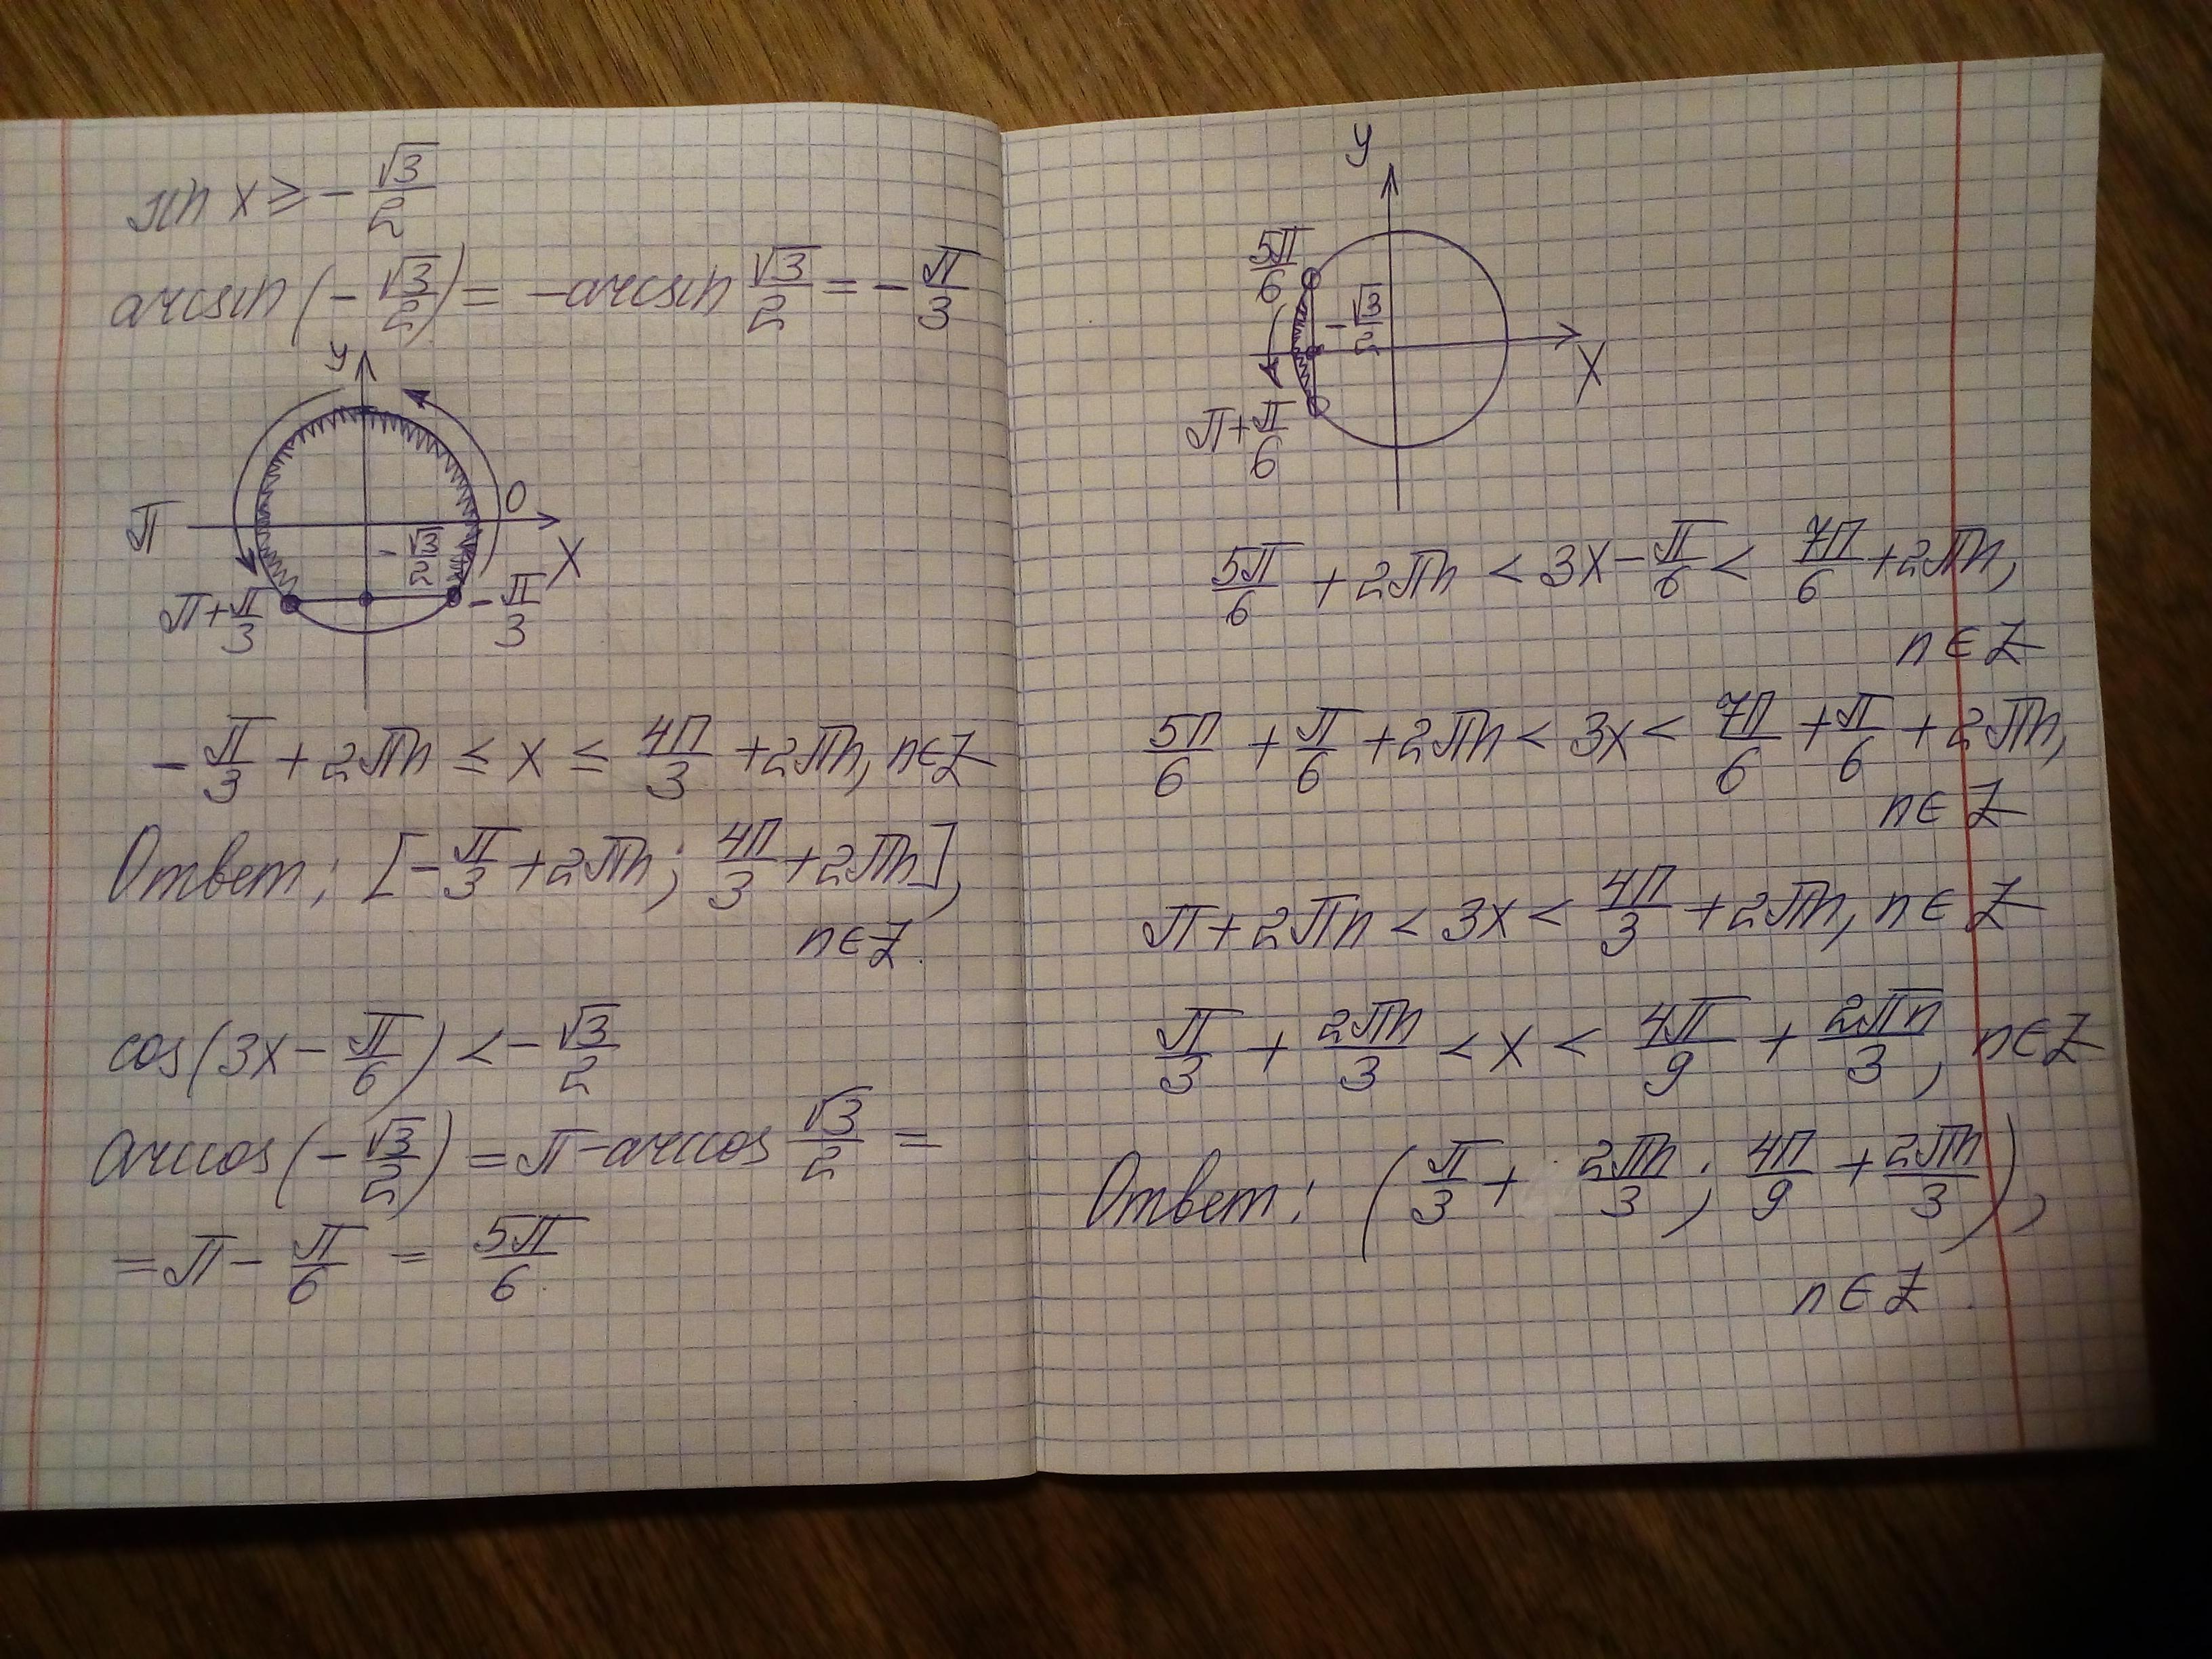 sin x ≥ -√3/2
arcsin(-√3/2) = -arcsin √3/2 = -π/3
y
0
π
X
-√3/2
π+π/3
-π/3
-π/3 + 2πn ≤ x ≤ 4π/3 + 2πn, n∈Z
Ответ: [-π/3 + 2πn; 4π/3 + 2πn],
n∈Z.
cos(3x - π/6) < -√3/2
arccos(-√3/2) = π - arccos √3/2 =
= π - π/6 = 5π/6.
y
5π/6
-√3/2
X
π+π/6
5π/6 + 2πn < 3x - π/6 < 7π/6 + 2πn,
n∈Z
5π/6 + π/6 + 2πn < 3x < 7π/6 + π/6 + 2πn,
n∈Z
π + 2πn < 3x < 4π/3 + 2πn, n∈Z
π/3 + 2πn/3 < x < 4π/9 + 2πn/3, n∈Z
Ответ: (π/3 + 2πn/3; 4π/9 + 2πn/3),
n∈Z.